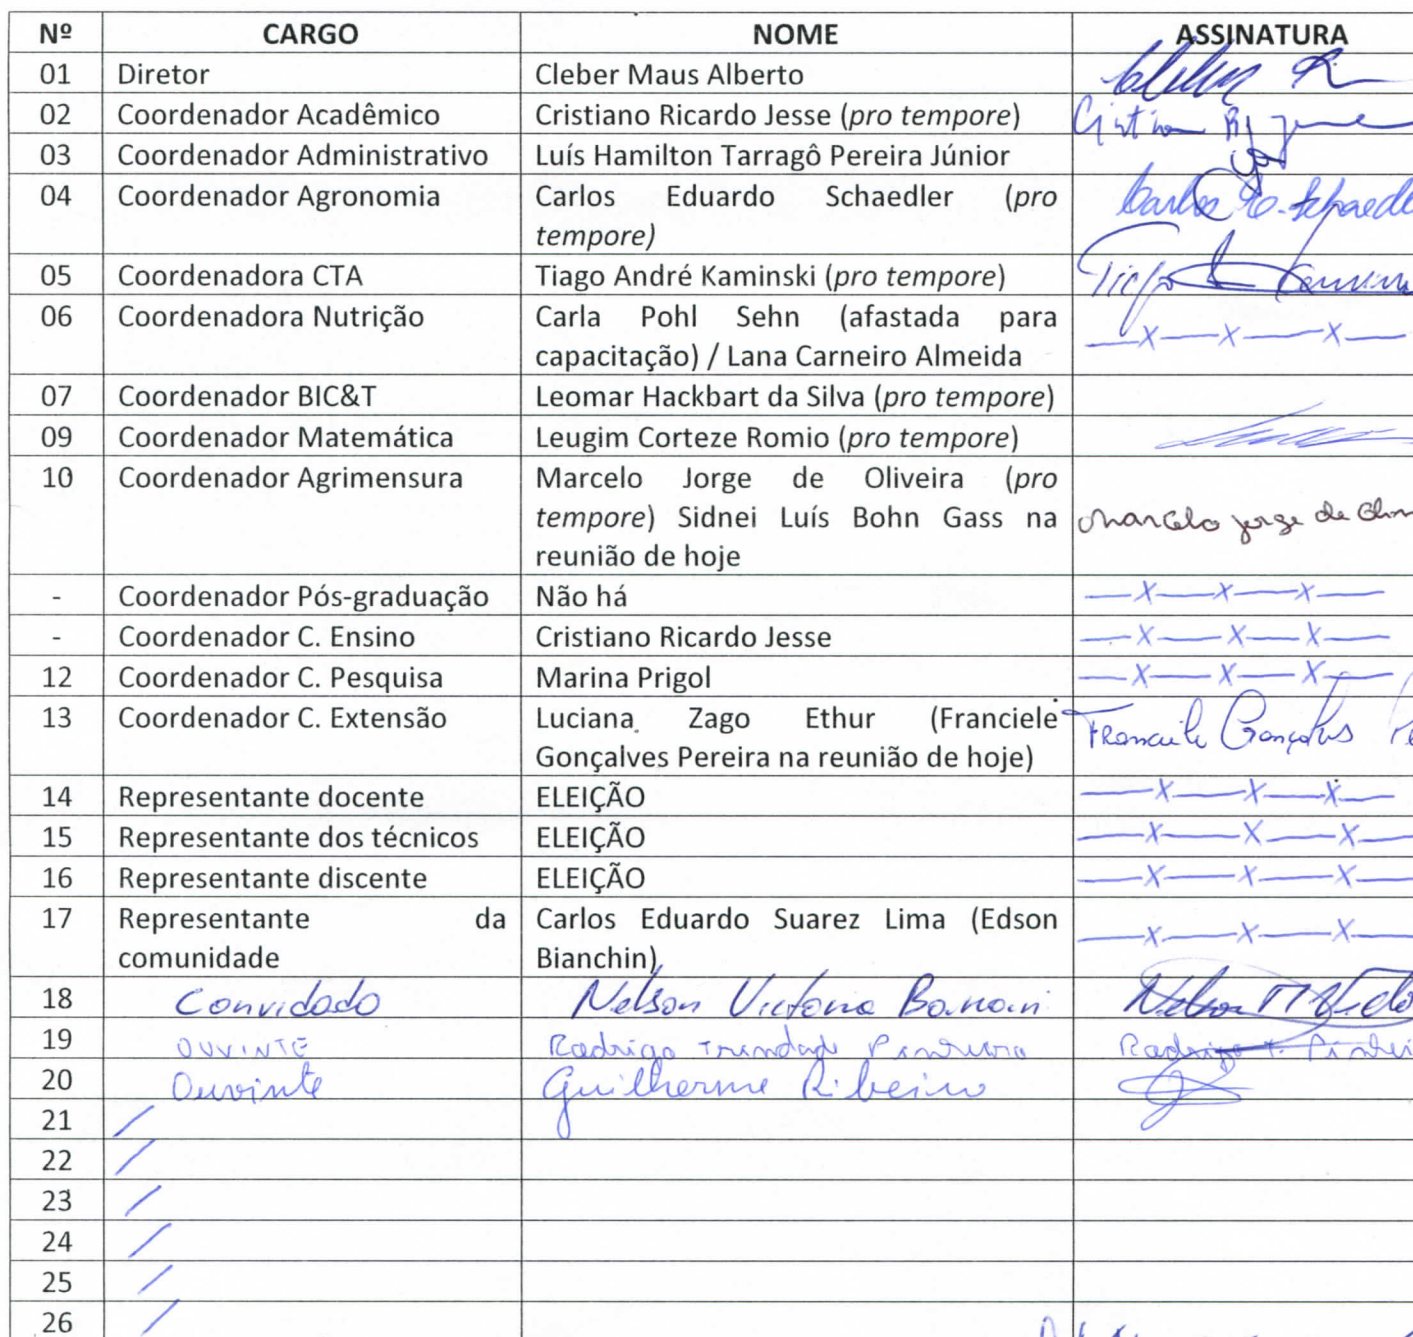 Nº CARGO NOME ASSINATURA
01 Diretor Cleber Maus Alberto
02 Coordenador Acadêmico Cristiano Ricardo Jesse (pro tempore)
03 Coordenador Administrativo Luís Hamilton Tarragô Pereira Júnior
04 Coordenador Agronomia Carlos Eduardo Schaedler (pro
tempore)
05 Coordenadora CTA Tiago André Kaminski (pro tempore)
06 Coordenadora Nutrição Carla Pohl Sehn (afastada para
capacitação) / Lana Carneiro Almeida —x—x—x—
07 Coordenador BIC&T Leomar Hackbart da Silva (pro tempore)
09 Coordenador Matemática Leugim Corteze Romio (pro tempore)
10 Coordenador Agrimensura Marcelo Jorge de Oliveira (pro
tempore) Sidnei Luís Bohn Gass na Marcelo Jorge de
reunião de hoje
- Coordenador Pós-graduação Não há —x—x—x—
- Coordenador C. Ensino Cristiano Ricardo Jesse —x—x—x—
12 Coordenador C. Pesquisa Marina Prigol —x—x—x—
13 Coordenador C. Extensão Luciana Zago Ethur (Franciele
Gonçalves Pereira na reunião de hoje) Franciele Gonçalves
14 Representante docente ELEIÇÃO —x—x—x—
15 Representante dos técnicos ELEIÇÃO —x—x—x—
16 Representante discente ELEIÇÃO —x—x—x—
17 Representante da Carlos Eduardo Suarez Lima (Edson
comunidade Bianchin) —x—x—x—
18 Convidado Nelson Victoria Bariani
19 OUVINTE Rodrigo Trindade Pinheiro Rodrigo T.
20 Ouvinte Guilherme Ribeiro
21 /
22 /
23 /
24 /
25 /
26 /